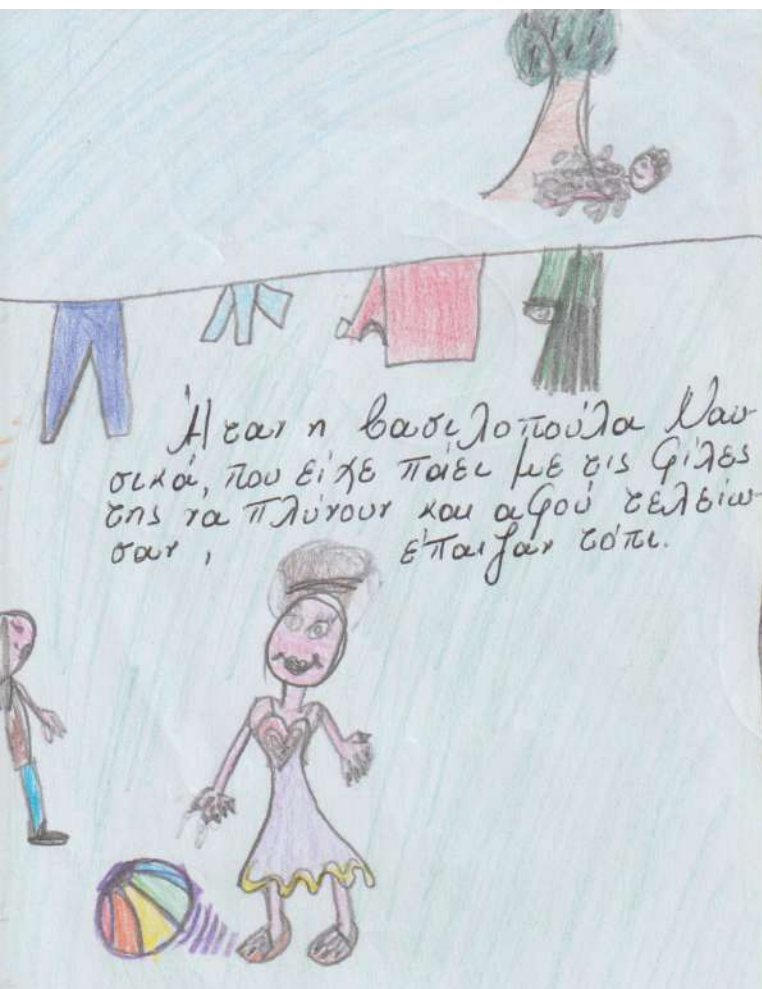 Ήταν η βασιλοπούλα Ναυ-
σικά, που είχε πάει με τις φίλες
της να πλύνουν και αφού τελείω-
σαν, έπαιξαν τόπι.